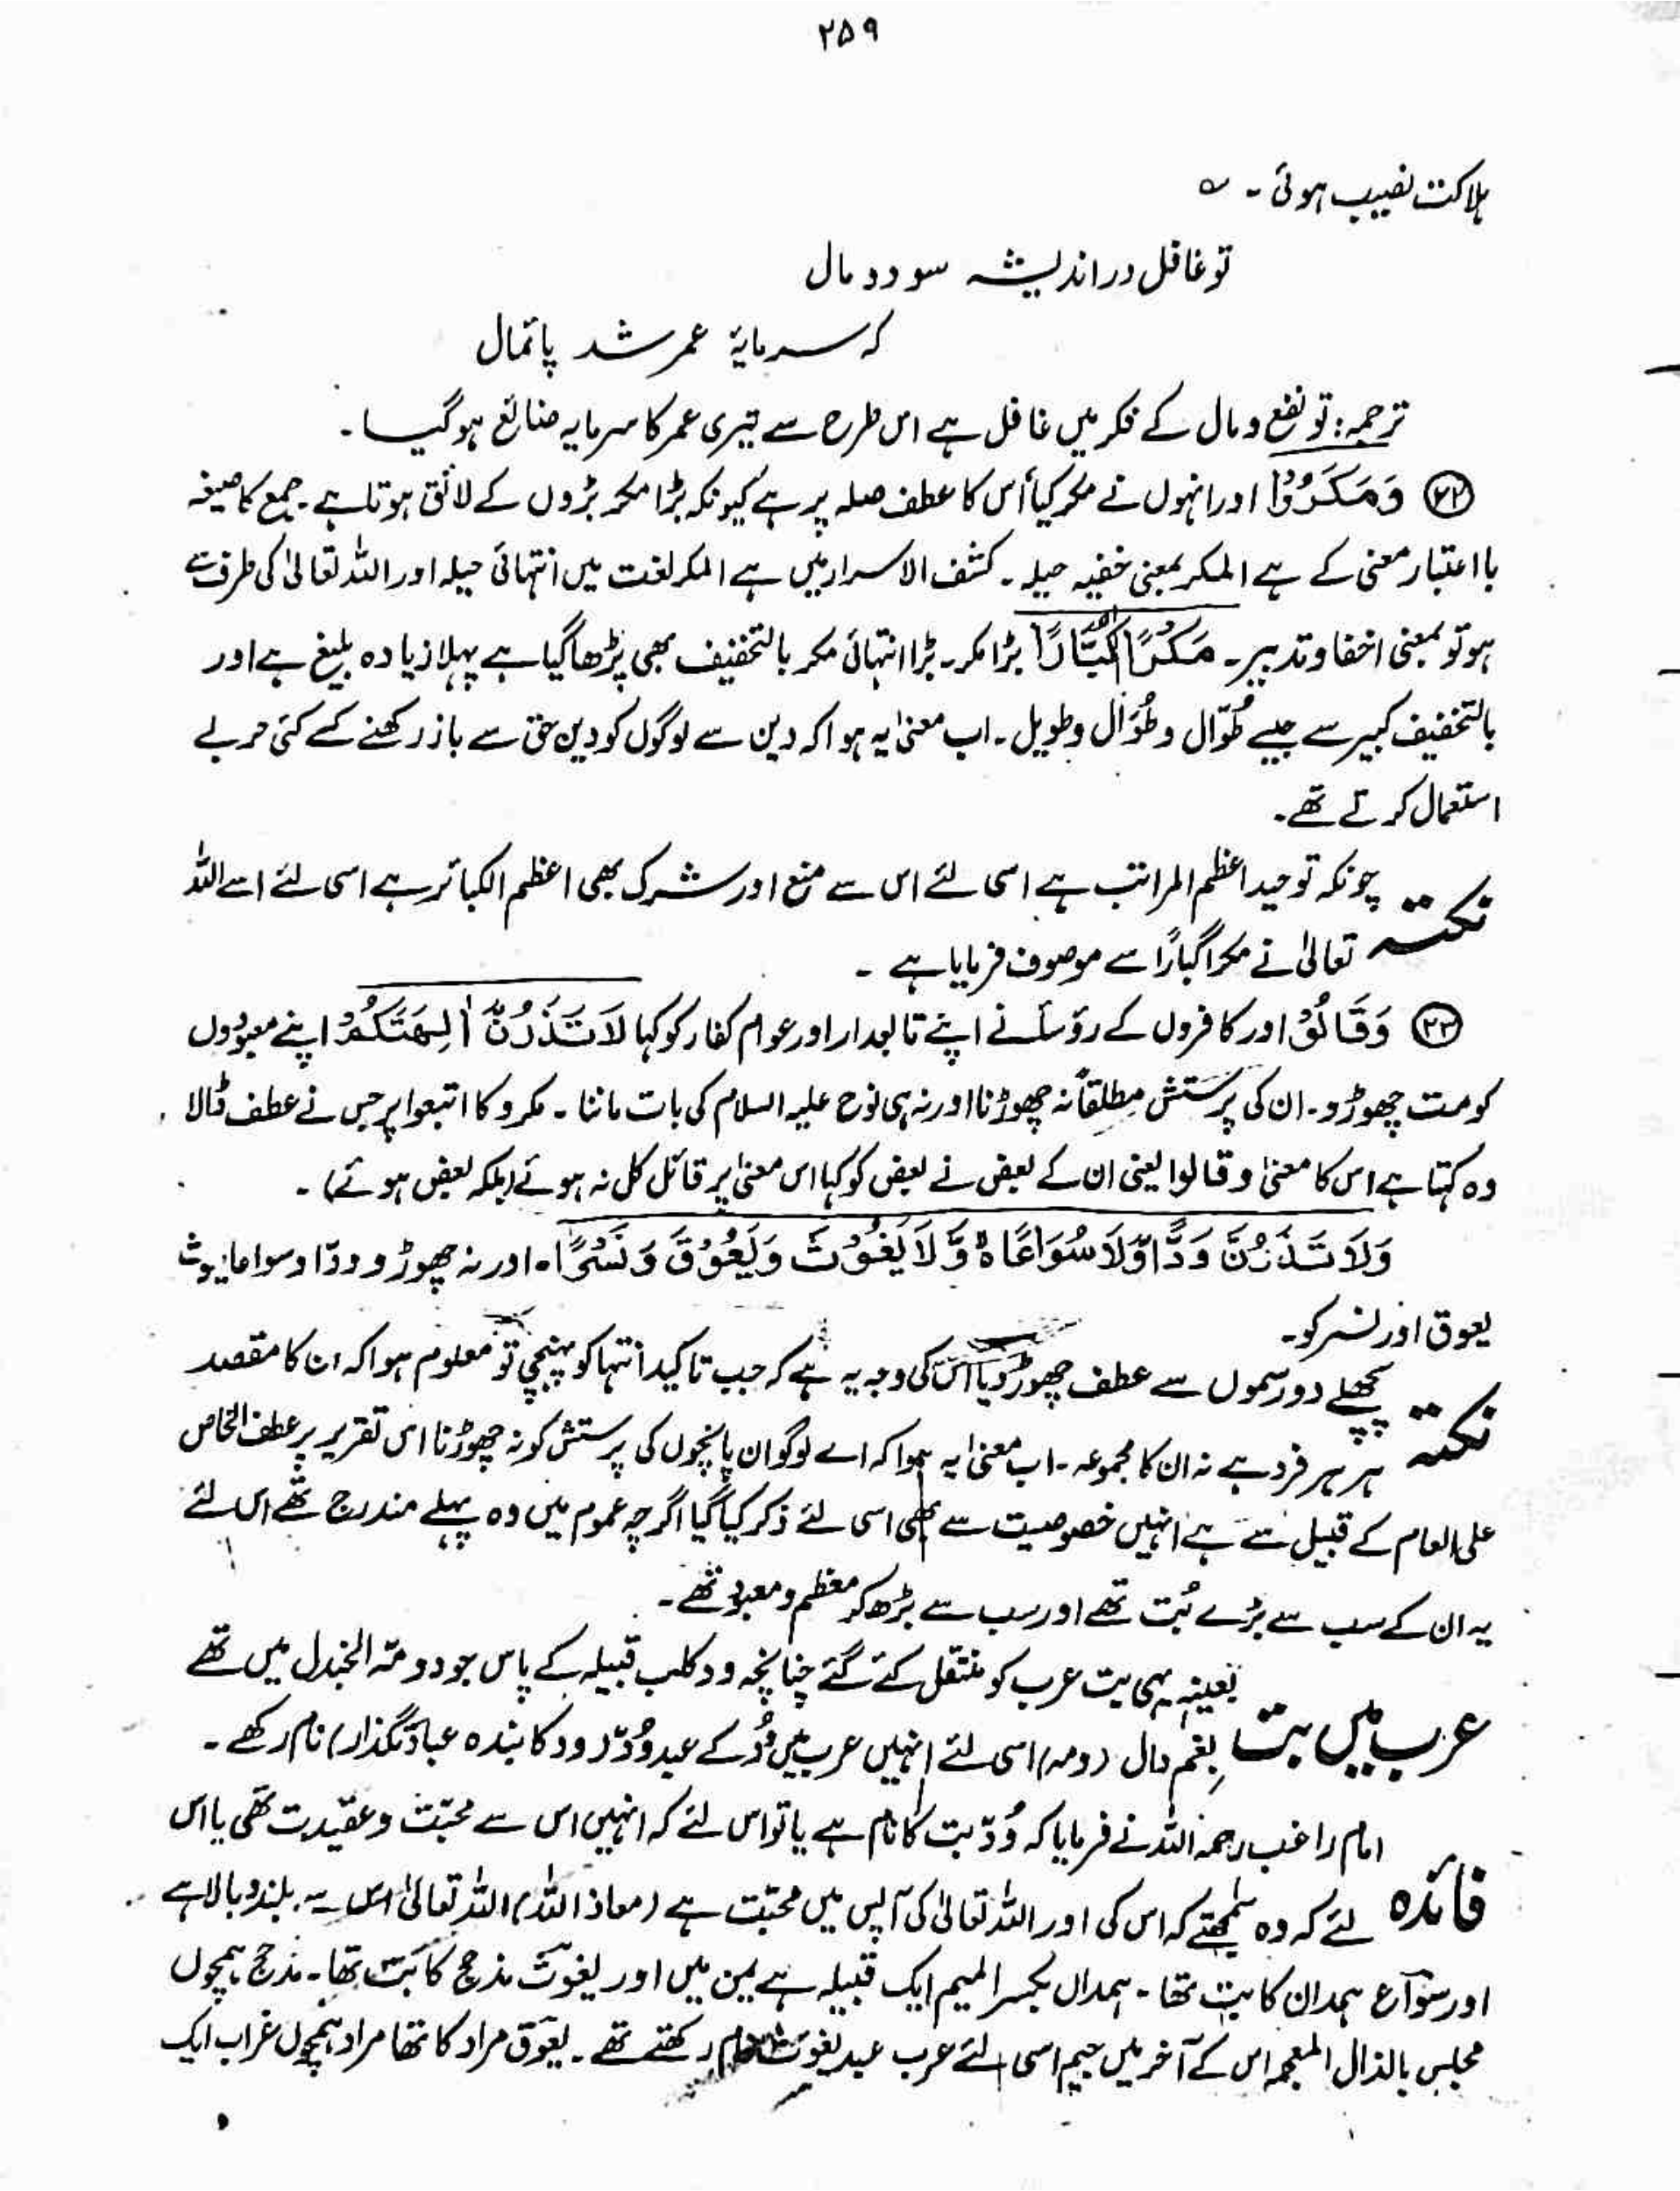 ۲۵۹
ہلاکت نصیب ہوئی ۔ ؎
تو غافل در اندیشہ سود و مال
کہ سرمایۂ عمر شد پائمال
ترجمہ: تو نفع و مال کے فکر میں غافل ہے اس طرح سے تیری عمر کا سرمایہ ضائع ہوگیا ۔
(۲۲) وَمَكَرُوْا اور انہوں نے مکر کیا اُس کا عطف صلہ پر ہے کیونکہ بڑا مکر بڑوں کے لائق ہوتا ہے ۔ جمع کا صیغہ
با اعتبار معنی کے ہے المکر بمعنی خفیہ حیلہ ۔ کشف الاسرار میں ہے المکر لغت میں انتہائی حیلہ اور اللہ تعالیٰ کی طرف سے
ہو تو بمعنی اخفا و تدبیر ۔ مَكْرًا كُبَّارًا بڑا مکر ۔ بڑا انتہائی مکر بالتخفیف بھی پڑھا گیا ہے پہلا زیادہ بلیغ ہے اور
بالتخفیف کبیر سے جیسے طُوّال و طُوَال و طویل ۔ اب معنیٰ یہ ہوا کہ دین سے لوگوں کو دینِ حق سے باز رکھنے کے کئی حربے
استعمال کرتے تھے ۔
نکتہ چونکہ توحید اعظم المراتب ہے اسی لئے اس سے منع اور شرک بھی اعظم الکبائر ہے اسی لئے اسے اللہ
تعالیٰ نے مکراً کبارًا سے موصوف فرمایا ہے ۔
(۲۳) وَقَالُوْا اور کافروں کے رؤسا نے اپنے تابعدار اور عوام کفار کو کہا لَا تَذَرُنَّ اٰلِهَتَكُمْ اپنے معبودوں
کو مت چھوڑو ۔ ان کی پرستش مطلقاً نہ چھوڑنا اور نہ ہی نوح علیہ السلام کی بات ماننا ۔ مکرو کا اتبعوا پر جس نے عطف ڈالا
وہ کہتا ہے اس کا معنیٰ و قالوا یعنی ان کے بعض نے بعض کو کہا اس معنیٰ پر قائل کل نہ ہوئے (بلکہ بعض ہوئے) ۔
وَلَا تَذَرُنَّ وَدًّا وَّلَا سُوَاعًا ۙ وَّ لَا يَغُوْثَ وَيَعُوْقَ وَنَسْرًا ۰ اور نہ چھوڑو ودّا و سواعا یغوث
یعوق اور نسر کو ۔
نکتہ پچھلے دو رسموں سے عطف چھوڑ دیا اس کی وجہ یہ ہے کہ جب تاکید انتہا کو پہنچی تو معلوم ہوا کہ ان کا مقصد
ہر ہر فرد ہے نہ ان کا مجموعہ ۔ اب معنیٰ یہ ہوا کہ اے لوگو ان پانچوں کی پرستش کو نہ چھوڑنا اس تقریر پر عطف الخاص
علی العام کے قبیل سے ہے انہیں خصوصیت سے بھی اسی لئے ذکر کیا گیا اگرچہ عموم میں وہ پہلے مندرج تھے اس لئے
یہ ان کے سب سے بڑے بُت تھے اور سب سے بڑھ کر معظم و معبود تھے ۔
عرب میں بت بعینہٖ یہی بت عرب کو منتقل کئے گئے چنانچہ ود کلب قبیلہ کے پاس جو دومۃ الجندل میں تھے
بِضم دال (دومہ) اسی لئے انہیں عرب میں وُدّ کے عبد وُدّ (ود کا بندہ عبادتگذار) نام رکھے ۔
فائدہ امام راغب رحمہ اللہ نے فرمایا کہ وُدّ بت کا نام ہے یا تو اس لئے کہ انہیں اس سے محبّت و عقیدت تھی یا اس
لئے کہ وہ سمجھتے کہ اس کی اور اللہ تعالیٰ کی آپس میں محبّت ہے (معاذ اللہ) اللہ تعالیٰ اس سے بلند و بالا ہے
اور سواع ہمدان کا بت تھا ۔ ہمدان بکسر المیم ایک قبیلہ ہے یمن میں اور یغوث مذحج کا بت تھا ۔ مذحج ہمچوں
مجلس بالذال المعجمہ اس کے آخر میں جیم اسی لئے عرب عبد یغوث نام رکھتے تھے ۔ یعوق مراد کا تھا مراد ہمچوں غراب ایک